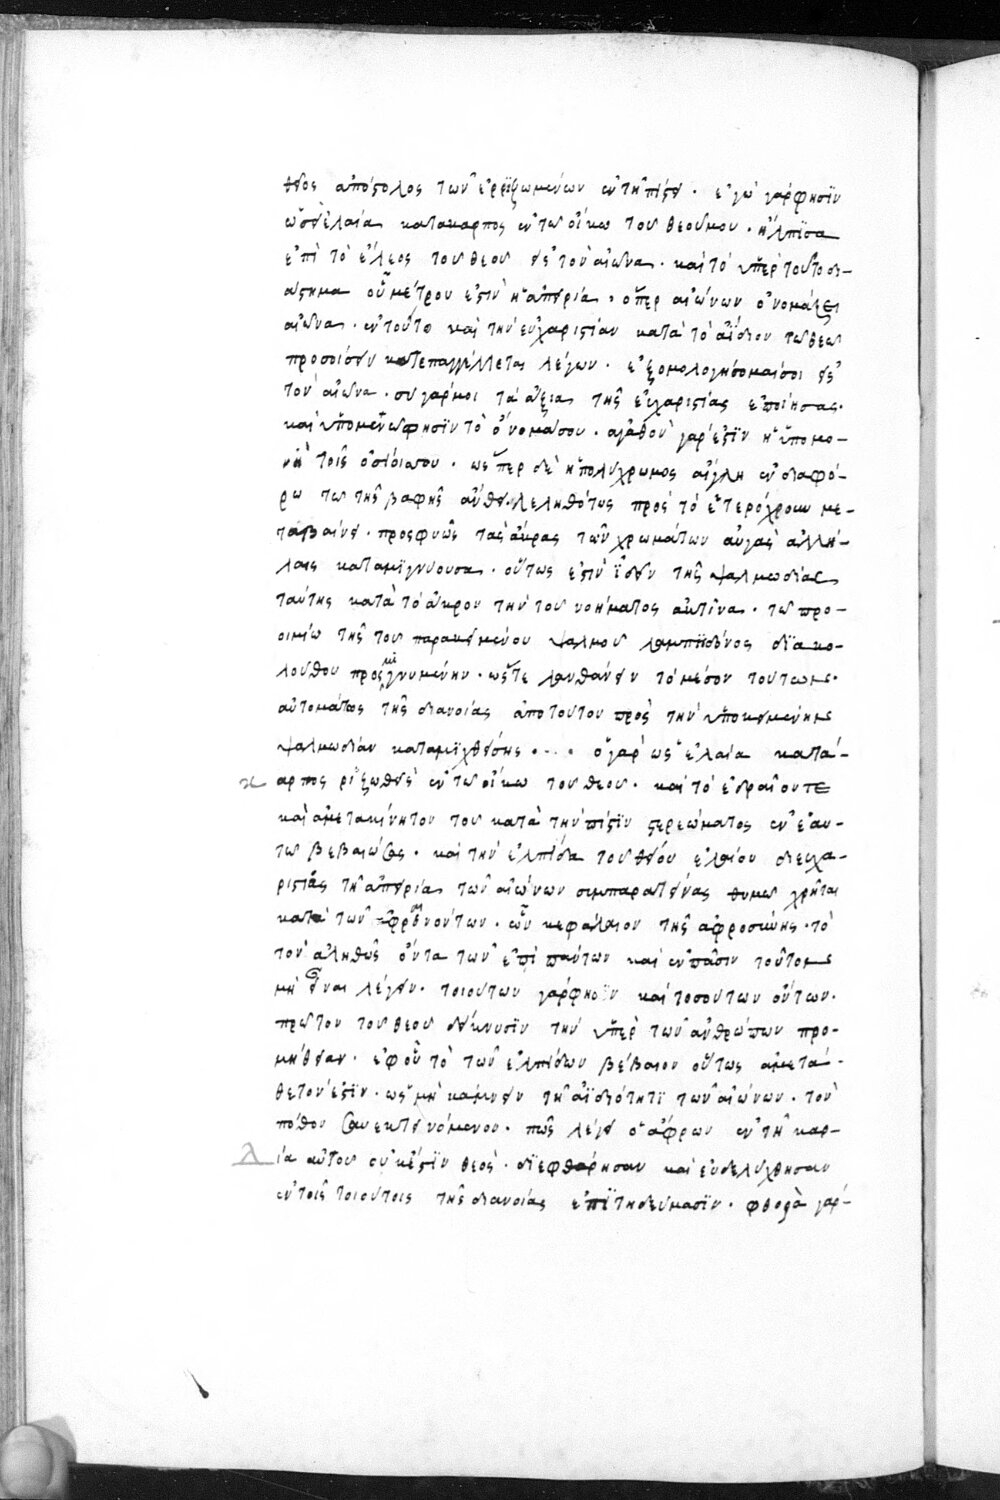 θεῖος ἀπόστολος τῶν ἐρριζωμένων ἐν τῇ πίστει · ἐγὼ γάρ φησϊν
ὡσεὶ ἐλαία κατάκαρπος ἐν τῶ οἴκω τοῦ θεοῦ μου · ἤλπϊσα
ἐπὶ τὸ ἔλεος τοῦ θεοῦ εἰς τὸν αἰῶνα · καὶ τὸ ὑπὲρ τοῦτο δι-
άστημα οὗ μέτρον ἐστὶν ἡ ἀπειρία · ὅπερ αἰώνων ὀνομάζει
αἰῶνα · ἐν τούτω καὶ τὴν εὐχαριστίαν κατὰ τὸ ἀΐδιον τῶ θεῶ
προσοίσειν κατεπαγγέλλεται λέγων · ἐξομολογήσομαί σοι εἰς
τὸν αἰῶνα · σὺ γάρ μοι τὰ ἄξια τῆς εὐχαριστίας ἐποίησας ·
καὶ ὑπομενῶ φησϊν τὸ ὄνομά σου · ἀγαθὸν γάρ ἐστϊν ἡ ὑπομο-
νὴ τοῖς ὁσίοις σου · ὥσπερ δὲ ἡ πολύχρωμος αἴγλη ἐν διαφό-
ρω τῶ τῆς βαφῆς ἄνθει λεληθότως πρὸς τὸ ἑτερόχροον με-
ταβαίνει · προσφυῶς τὰς ἄκρας τῶν χρωμάτων αὐγὰς ἀλλή-
λαις καταμϊγνύουσα · οὕτως ἐστὶν ἰδεῖν τῆς ψαλμωδίας
ταύτης κατὰ τὸ ἄκρον τὴν τοῦ νοήματος ἀκτῖνα · τῶ προ-
οιμίω τῆς τοῦ παρακειμένου ψαλμοῦ λαμπϊδόνος δϊ ἀκο-
λούθου προσμιγνυμένην · ὥστε λανθάνειν τὸ μέσον τούτων ·
αὐτομάτως τῆς διανοίας ἀπὸ τούτου πρὸς τὴν ὑποκειμένην
ψαλμωδίαν καταμϊχθείσης · . · ὁ γὰρ ὡς ἐλαία κατά-
καρπος ρϊζωθεὶς ἐν τῶ οἴκω τοῦ θεοῦ · καὶ τὸ ἑδραῖον τε
καὶ ἀμετακίνητον τοῦ κατὰ τὴν πίστϊν στερεώματος ἐν ἑαυ-
τῶ βεβαιώσας · καὶ τὴν ἐλπίδα τοῦ θείου ἐλαίου δι εὐχα-
ριστίας τῆ ἀπειρία τῶν αἰώνων συμπαρατείνας θυμῶ χρῆται
κατὰ τῶν ἀφραινόντων · ὧν κεφάλαιον τῆς ἀφροσύνης · τὸ
τὸν ἀληθῶς ὄντα τῶν ἐπὶ πάντων καὶ ἐν πᾶσιν τοῦτον
μὴ εἶναι λέγειν · τοιούτων γάρ φησϊν καὶ τοσούτων ὄντων ·
πρῶτον τοῦ θεοῦ δείκνυσϊν τὴν ὑπὲρ τῶν ἀνθρώπων προ-
μήθειαν · ἐφ οὗ τὸ τῶν ἐλπίδων βέβαιον οὕτως ἀμετά-
θετον ἐστϊν · ὡς μὴ κάμνειν τῆ ἀϊδιότητϊ τῶν αἰώνων · τὸν
πόθον συνεκτεινόμενον · πῶς λέγει ὁ ἄφρων ἐν τῆ καρ-
δία αὐτοῦ οὐκ ἔστϊν θεὸς · δϊεφθάρησαν καὶ ἐβδελύχθησαν
ἐν τοῖς τοιούτοις τῆς διανοίας ἐπϊτηδεύμασϊν · φθορὰ γάρ